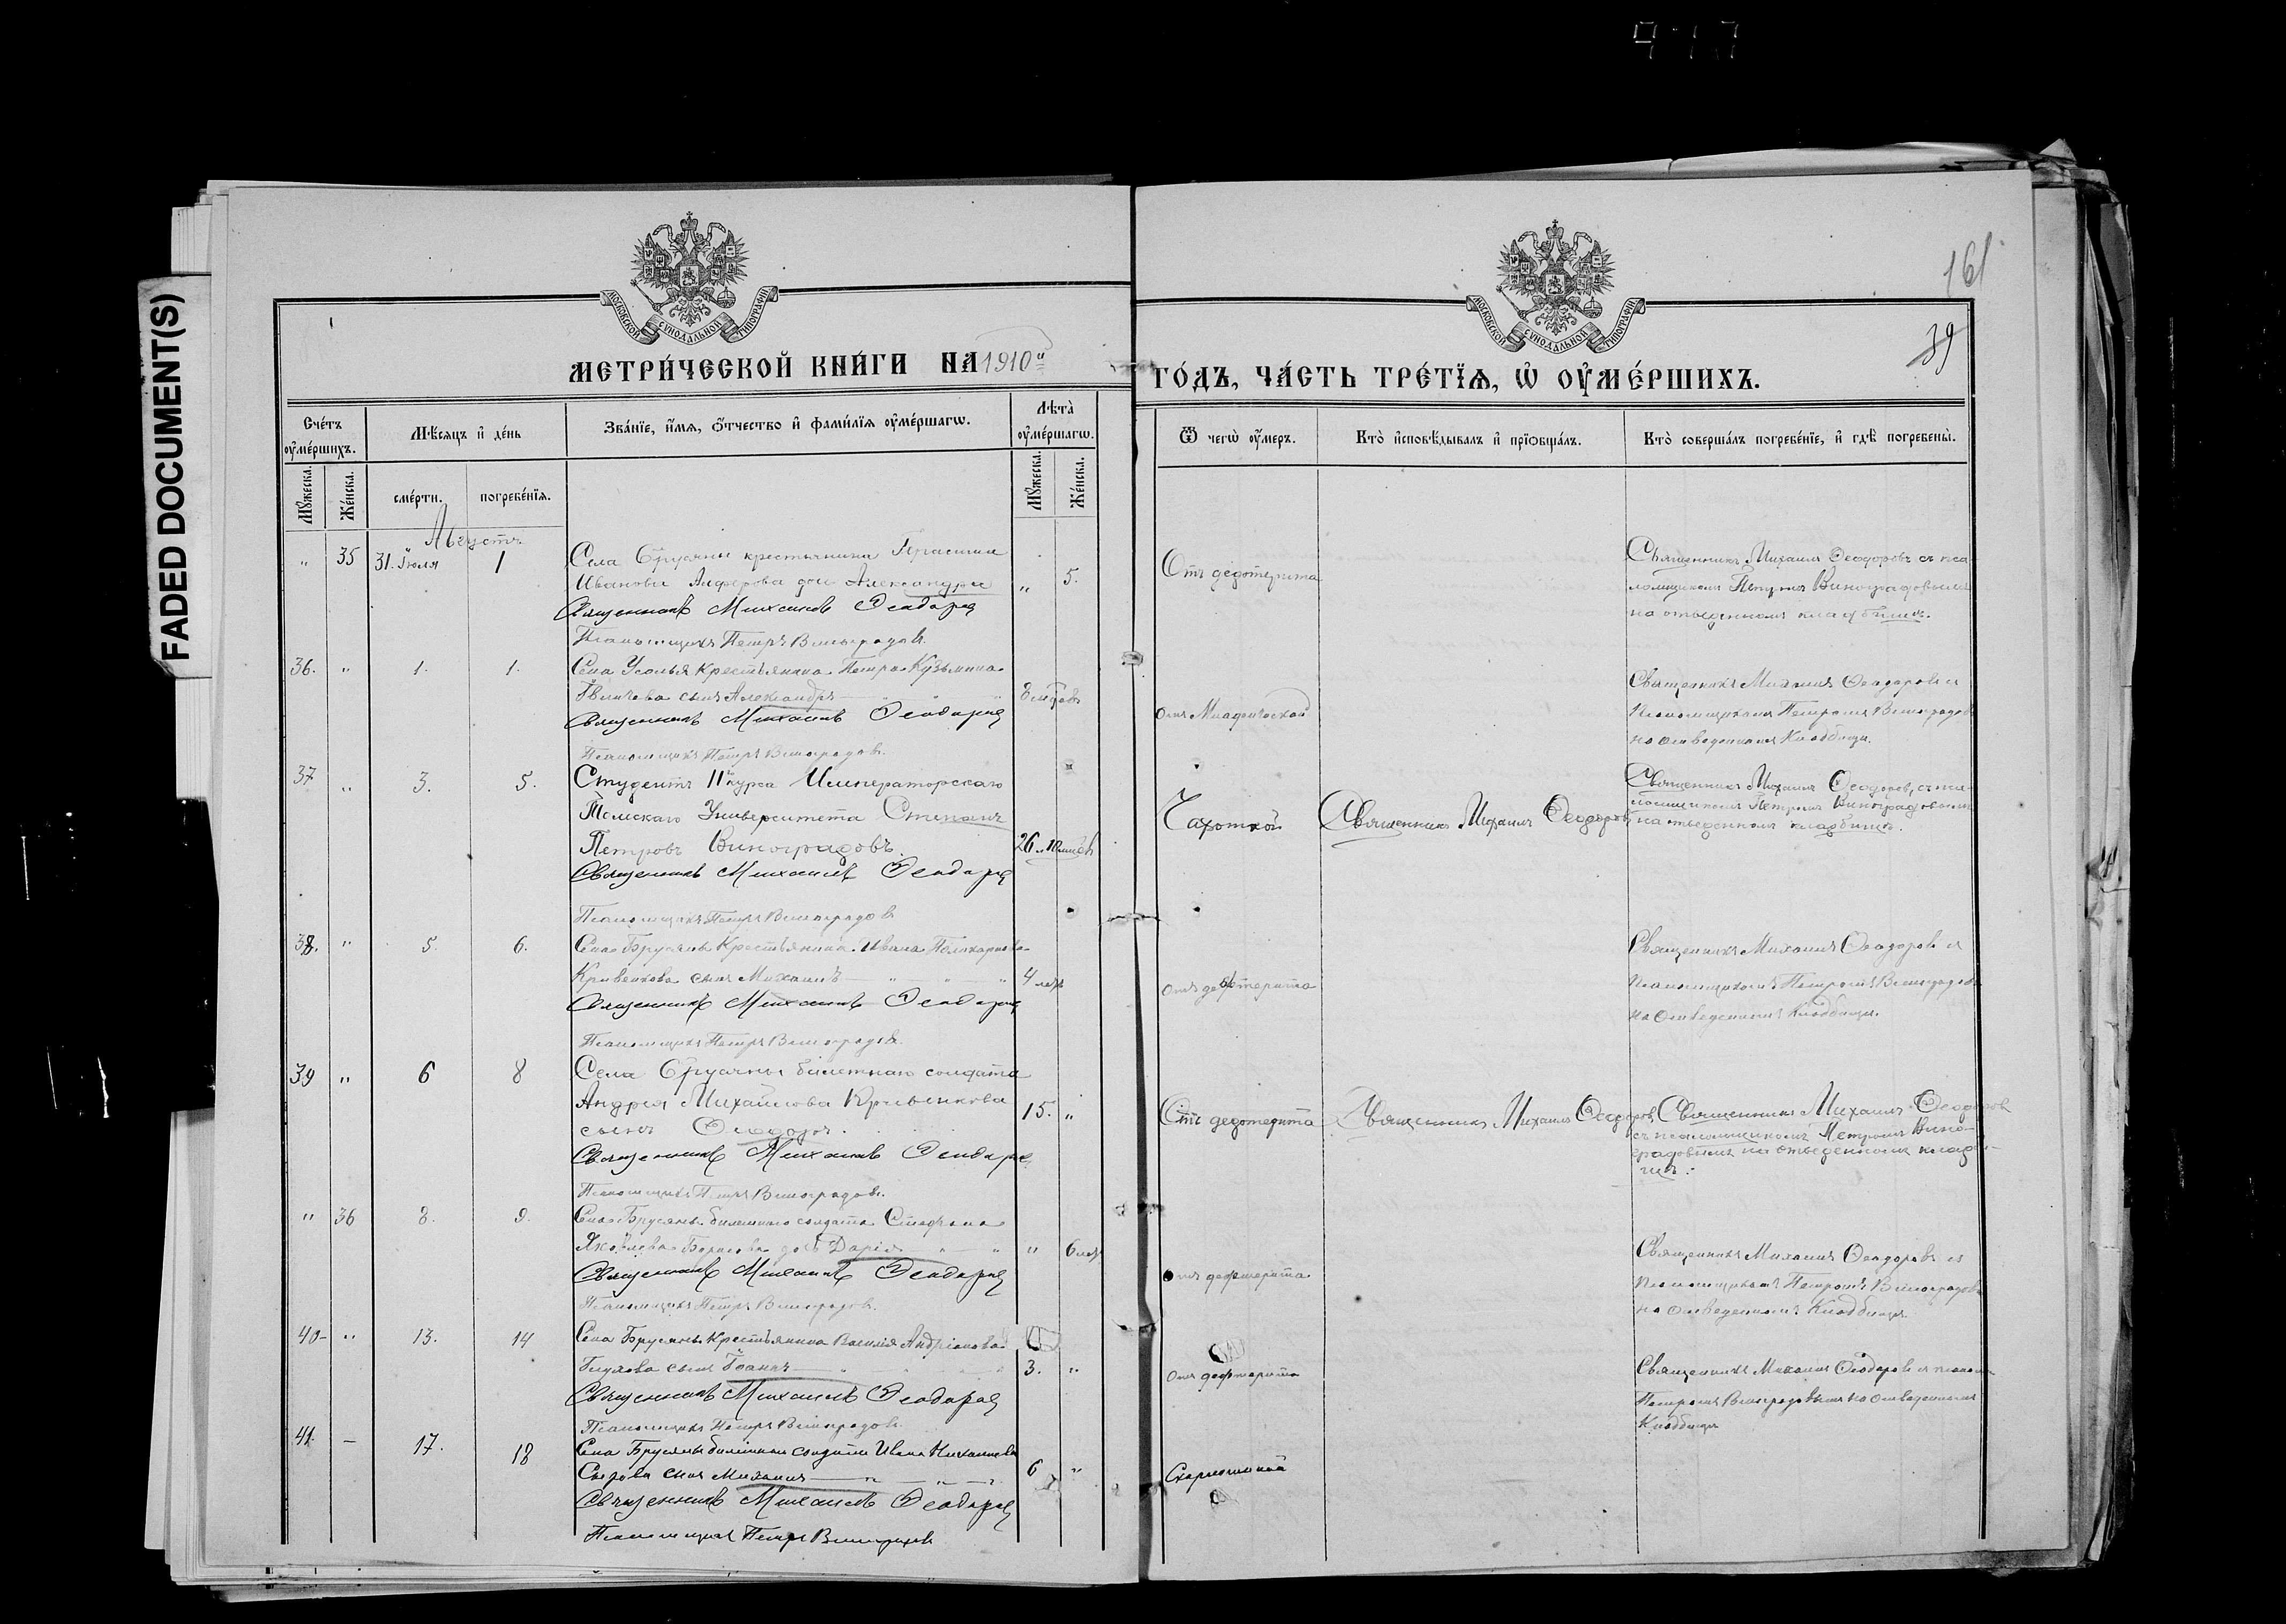 FADED DOCUMENT(S)
161
39
МОСКОВСКОЙ СѴНОДАЛЬНОЙ ТИПОГРАФІИ
МОСКОВСКОЙ СѴНОДАЛЬНОЙ ТИПОГРАФІИ
МЕТРИ́ЧЕСКОЙ КНИ́ГИ НА 1910й
ГО́ДЪ, ЧА́СТЬ ТРЕ́ТЇѦ, Ѡ҆ ОУ҆МЕ́РШИХЪ.
Сче́тъ оу҆ме́ршихъ.
Мѣ́сяцъ и҆ де́нь
Зва́нїе, и҆́мѧ, ѻ҆́тчество и҆ фами́лїѧ оу҆ме́ршагѡ.
Лѣта̀ оу҆ме́ршагѡ.
Ѿ чегѡ̀ оу҆́меръ.
Кто̀ и҆сповѣ́дывалъ и҆ прїѡбща́лъ.
Кто̀ соверша́лъ погребе́нїе, и҆ гдѣ̀ погребены̀.
Мꙋ́жеска. Же́нска.
сме́рти. погребе́нїѧ.
Мꙋ́жеска. Же́нска.
Августъ
" 35 31. Іюля 1
Села Брусяны крестьянина Герасима
Иванова Алферова дочь Александра " 5.
Священникъ Михаилъ Ѳеодоровъ
Псаломщикъ Петръ Виноградовъ.
Отъ дефтерита
Священникъ Михаилъ Ѳеодоровъ съ пса
ломщикомъ Петромъ Виноградовымъ
на отведенномъ кладбищѣ.
36. " 1. 1.
Села Усолья Крестьянина Петра Кузьмина
сынъ Александръ
Священникъ Михаилъ Ѳеодоровъ
Псаломщикъ Петръ Виноградовъ.
Священникъ Михаилъ Ѳеодоровъ съ
Псаломщикомъ Петромъ Виноградов
на отведенномъ Кладбищѣ.
37 " 3. 5.
Студентъ II курса Императорскаго
Томскаго Университета Степанъ
Петровъ Виноградовъ. 26 л 10 мѣс
Священникъ Михаилъ Ѳеодоровъ
Псаломщикъ Петръ Виноградовъ
Чахоткой
Священникъ Михаилъ Ѳеодоровъ
Священникъ Михаилъ Ѳеодоровъ, съ пса
ломщикомъ Петромъ Виноградовымъ
на отведенномъ кладбищѣ.
38. " 5. 6.
Села Брусянъ Крестьянина Ивана Поликарпова
Кривенкова сынъ Михаилъ " " " 4 лѣтъ
Священникъ Михаилъ Ѳеодоровъ
Псаломщикъ Петръ Виноградовъ.
отъ дефтерита
Священникъ Михаилъ Ѳеодоровъ съ
Псаломщикомъ Петромъ Виноградов
на отведенномъ Кладбищѣ.
39 " 6 8
Села Брусяны билетнаго солдата
Андрея Михайлова Кривенкова
сынъ Ѳеодоръ. 15. "
Священникъ Михаилъ Ѳеодоровъ
Псаломщикъ Петръ Виноградовъ.
Отъ дефтерита
Священникъ Михаилъ Ѳеодоровъ
Священникъ Михаилъ Ѳеодоров
съ псаломщикомъ Петромъ Вино-
градовымъ на отведенномъ кладб-
ищѣ.
" 36 8. 9.
Села Брусянъ билетнаго солдата Стефана
Яковлева Борисова дочь Дарія " " " 6 лѣт
Священникъ Михаилъ Ѳеодоровъ
Псаломщикъ Петръ Виноградовъ.
отъ дефтерита
Священникъ Михаилъ Ѳеодоровъ съ
Псаломщикомъ Петромъ Виноградовы
на отведенномъ Кладбищѣ
40 " 13. 14
Села Брусянъ Крестьянина Василія Андріанова
Глухова сынъ Іоаннъ 3. "
Священникъ Михаилъ Ѳеодоровъ
Псаломщикъ Петръ Виноградовъ.
отъ дефтерита
Священникъ Михаилъ Ѳеодоровъ съ псалом
Петромъ Виноградовымъ на отведенномъ
Кладбищѣ
41. – 17. 18
Села Брусяны билетнаго солдата Ивана Михаилова
сынъ Михаилъ " " 6 "
Священникъ Михаилъ Ѳеодоровъ
Псаломщикъ Петръ Виноградовъ
Скарлатиной